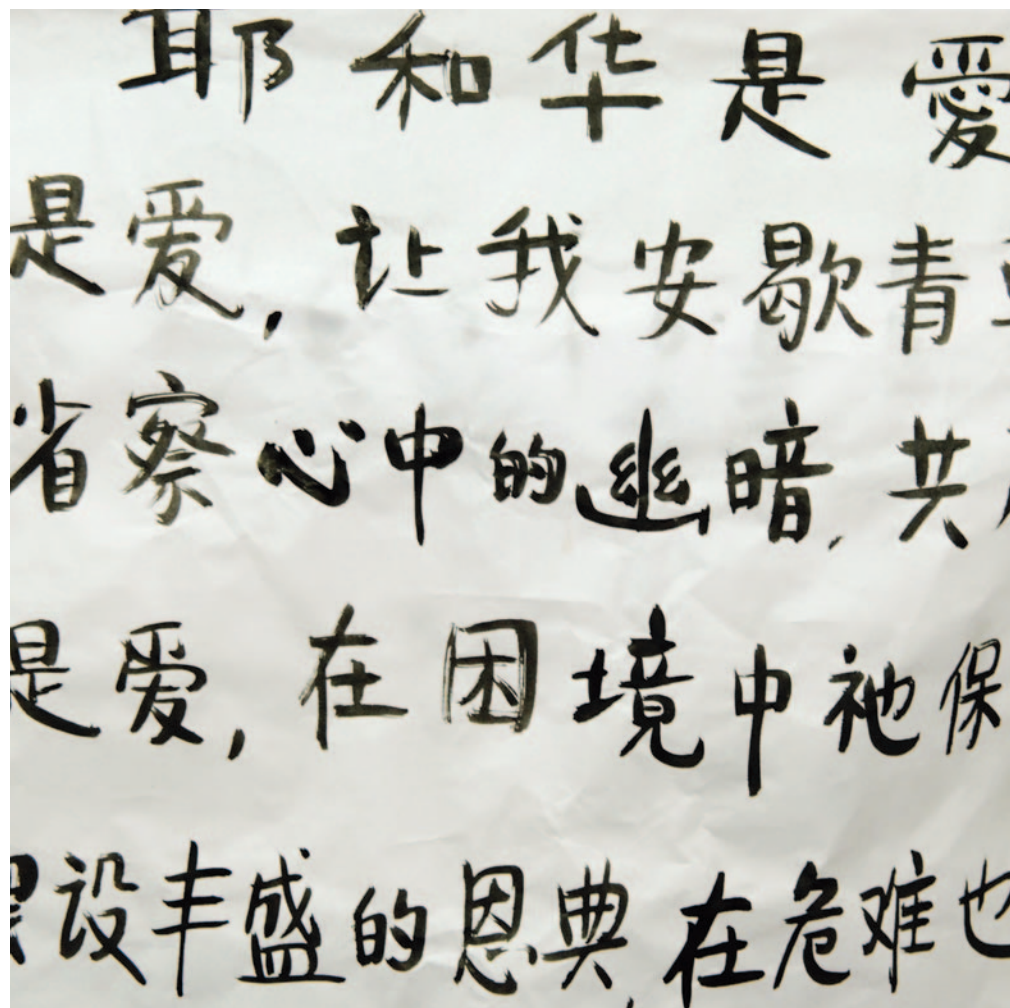 耶和华是愛
是爱,让我安歇青
省察心中的幽暗,共
是爱,在困境中祂保
摆设丰盛的恩典,在危难也